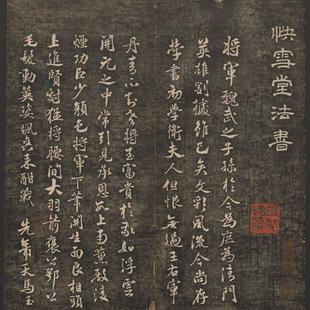 快雪堂法書
將軍魏武之子孫於今為庶為清門
英雄割據雖已矣文彩風流今尚存
學書初學衛夫人但恨無過王右軍
丹青不知老將至富貴於我如浮雲
開元之中常引見承恩數上南薰殿凌
煙功臣少顏色將軍下筆開生面良相頭
上進賢冠猛將腰間大羽箭褒公鄂公
毛髮動英姿颯爽來酣戰 先帝天馬玉